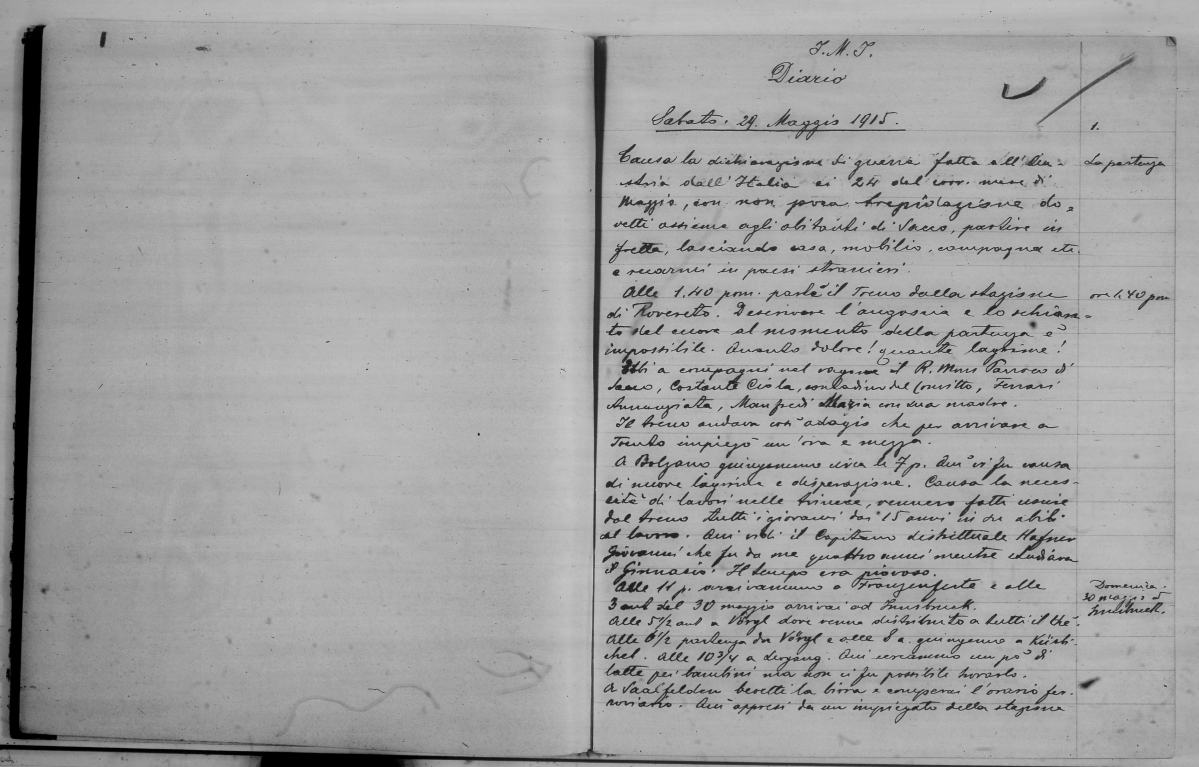 1
J. M. J.
Diario
Sabato. 29. Maggio 1915.
1.
Causa la dichiarazione di guerra fatta all'Au-
La partenza
stria dall'Italia ai 24 del corr. mese di
Maggio, con non poca trepidazione do-
vetti assieme agli abitanti di Sacco, partire in
fretta, lasciando casa, mobilio, campagna etc.
e recarmi in paesi stranieri.
Alle 1.40 pom. partì il Treno dalla stazione
ore 1.40 pom
di Rovereto. Descrivere l'angoscia e lo schian-
to del cuore al momento della partenza è
impossibile. Quanto dolore! quante lagrime!
Ebbi a compagni nel vagone il R. Mons Parroco di
Sacco, Costante Ciola, contadino del Convitto, Ferrari
Annunziata, Manfredi Maria con sua madre.
Il treno andava così adagio che per arrivare a
Trento impiegò un'ora e mezza.
A Bolzano giungemmo circa le 7 p. Qui vi fu causa
di nuove lagrime e disperazione. Causa la neces-
sità di lavori nelle trincee, vennero fatti uscire
dal treno tutti i giovani dai 15 anni in su abili
al lavoro. Qui vidi il Capitano distrettuale Hafner
Giovanni che fu da me quattro anni mentre studiava
il Ginnasio. Il tempo era piovoso.
Alle 11 p. arrivammo a Franzenfeste e alle
Domenica.
30 maggio a
Innsbruck.
3 ant del 30 maggio arrivai ad Innsbruck.
Alle 5 1/2 ant a Vörgl dove venne distribuito a tutti il thè.
Alle 6 1/2 partenza da Vörgl e alle 8 a. giungemmo a Kitzbi-
chel. Alle 10 3/4 a Leogang. Qui cercammo un pò di
latte pei bambini ma non ci fu possibile trovarlo.
A Saalfelden bevetti la birra e comperai l'orario fer-
roviario. Qui appresi da un impiegato della stazione